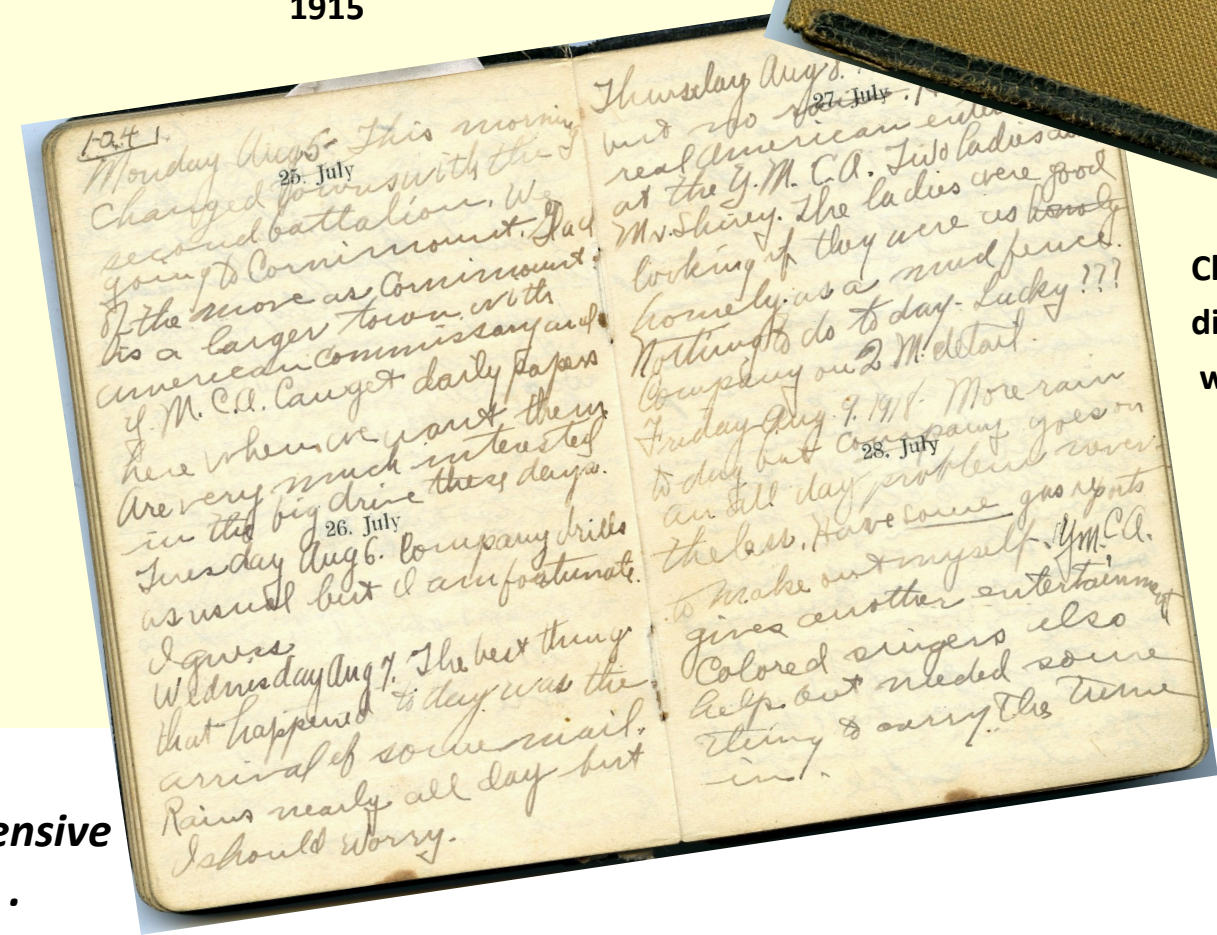 1915
1041
Monday Aug 5- This morning
25. July
changed towns with the
second battalion. We
going to Cornimount. Glad
of the move as Cornimount
is a larger town with
american commissary and
Y. M. C. A. Can get daily papers
here when we want them.
Are very much interested
in the big drive these days.
26. July
Tuesday Aug 6. Company drills
as usual but I am fortunate.
I guess
Wednesday Aug 7. The best thing
that happened to day was the
arrival of some mail.
Rains nearly all day but
I should worry.
Thursday Aug 8.
27. July
but no
real American
at the Y. M. C. A. Two ladies
Mr. Shirey. The ladies were good
looking if they were as homoly
homely as a mud fence.
Nothing to do to day- Lucky???
Company on 2 M. detail.
Friday Aug. 9. 1918. More rain
28. July
to day but company goes on
an all day problem never-
theless. Have some gas reports
to make out myself. Y.M.C.A.
gives another entertainment
Colored singers also
helps out needed some
thing to carry the time
in.
ensive
.